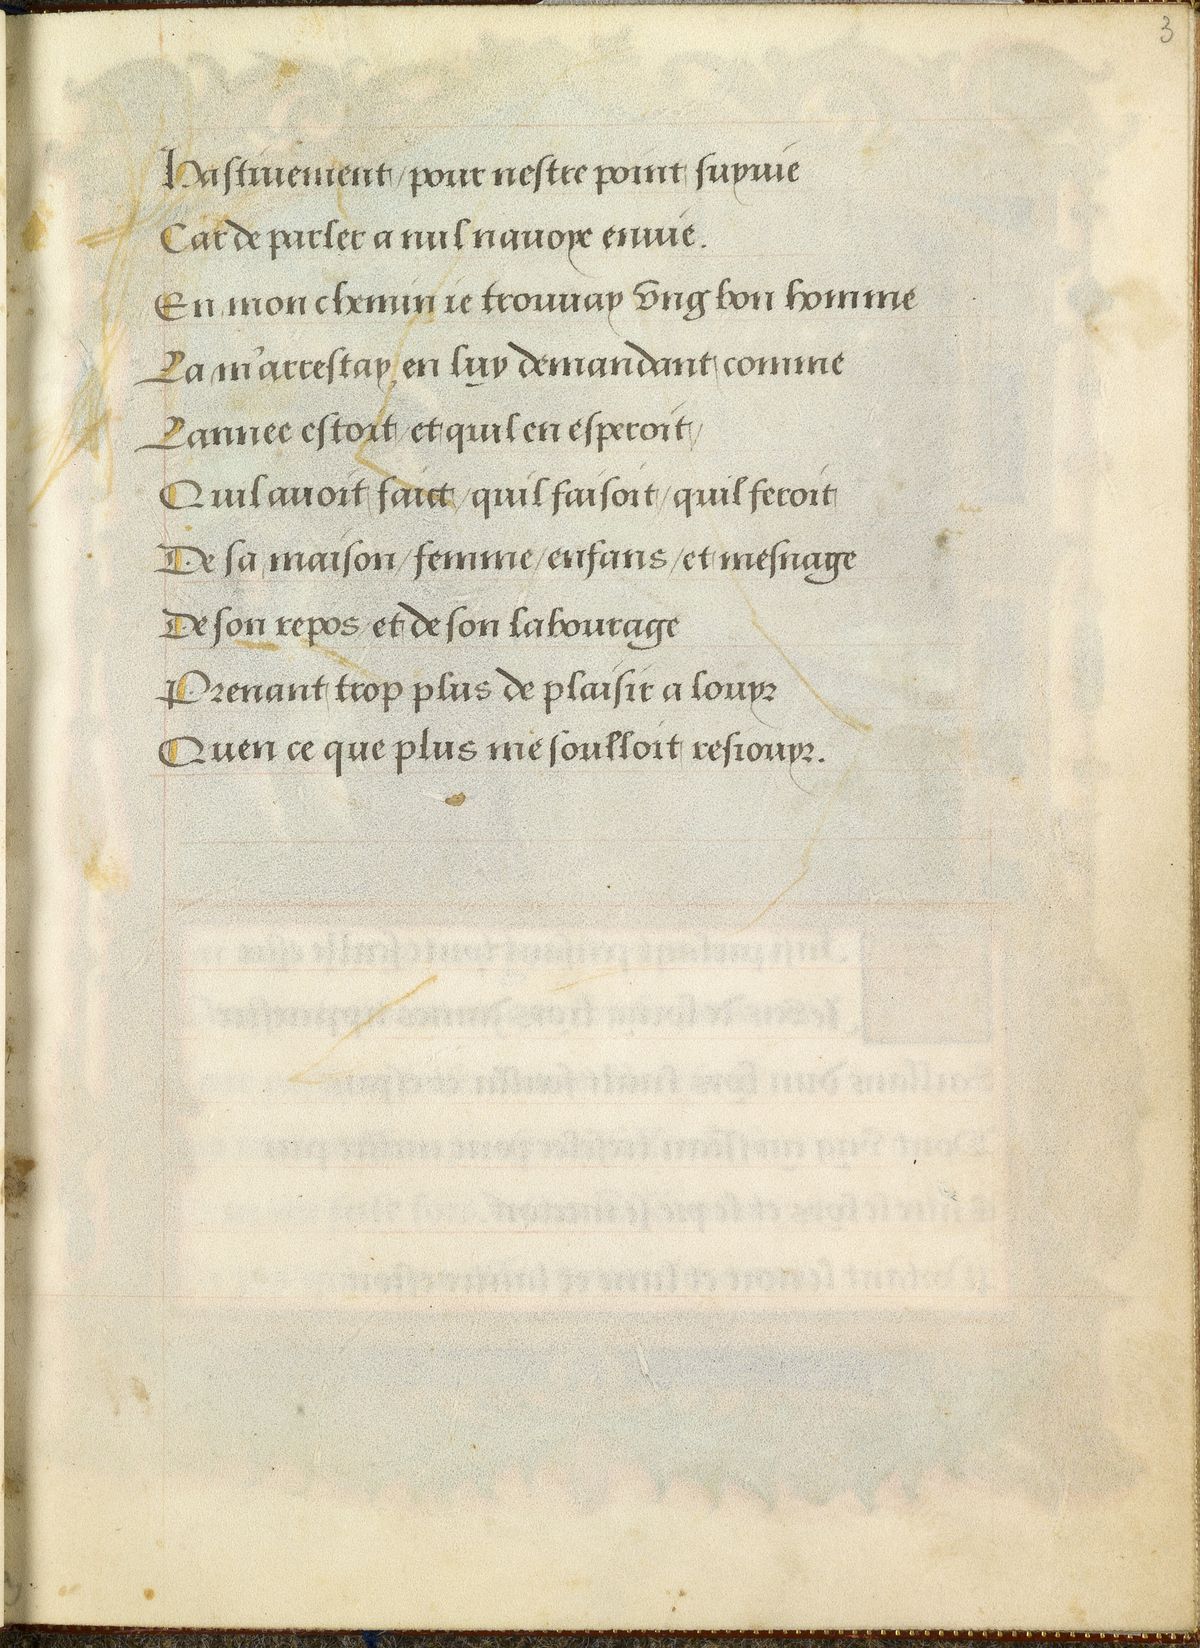 3
Hastiuement / pour nestre point suyuie
Car de parler a nul nauoye enuie.
En mon chemin ie trouuay vng bon homme
La m'arrestay, en luy demandant comme
Lannee estoit / et quil en esperoit /
Quil auoit faict / quil faisoit / quil feroit
De sa maison / femme / enfans / et mesnage
De son repos / et de son labourage
Prenant trop plus de plaisir a louyr
Quen ce que plus me soulloit resiouyr.